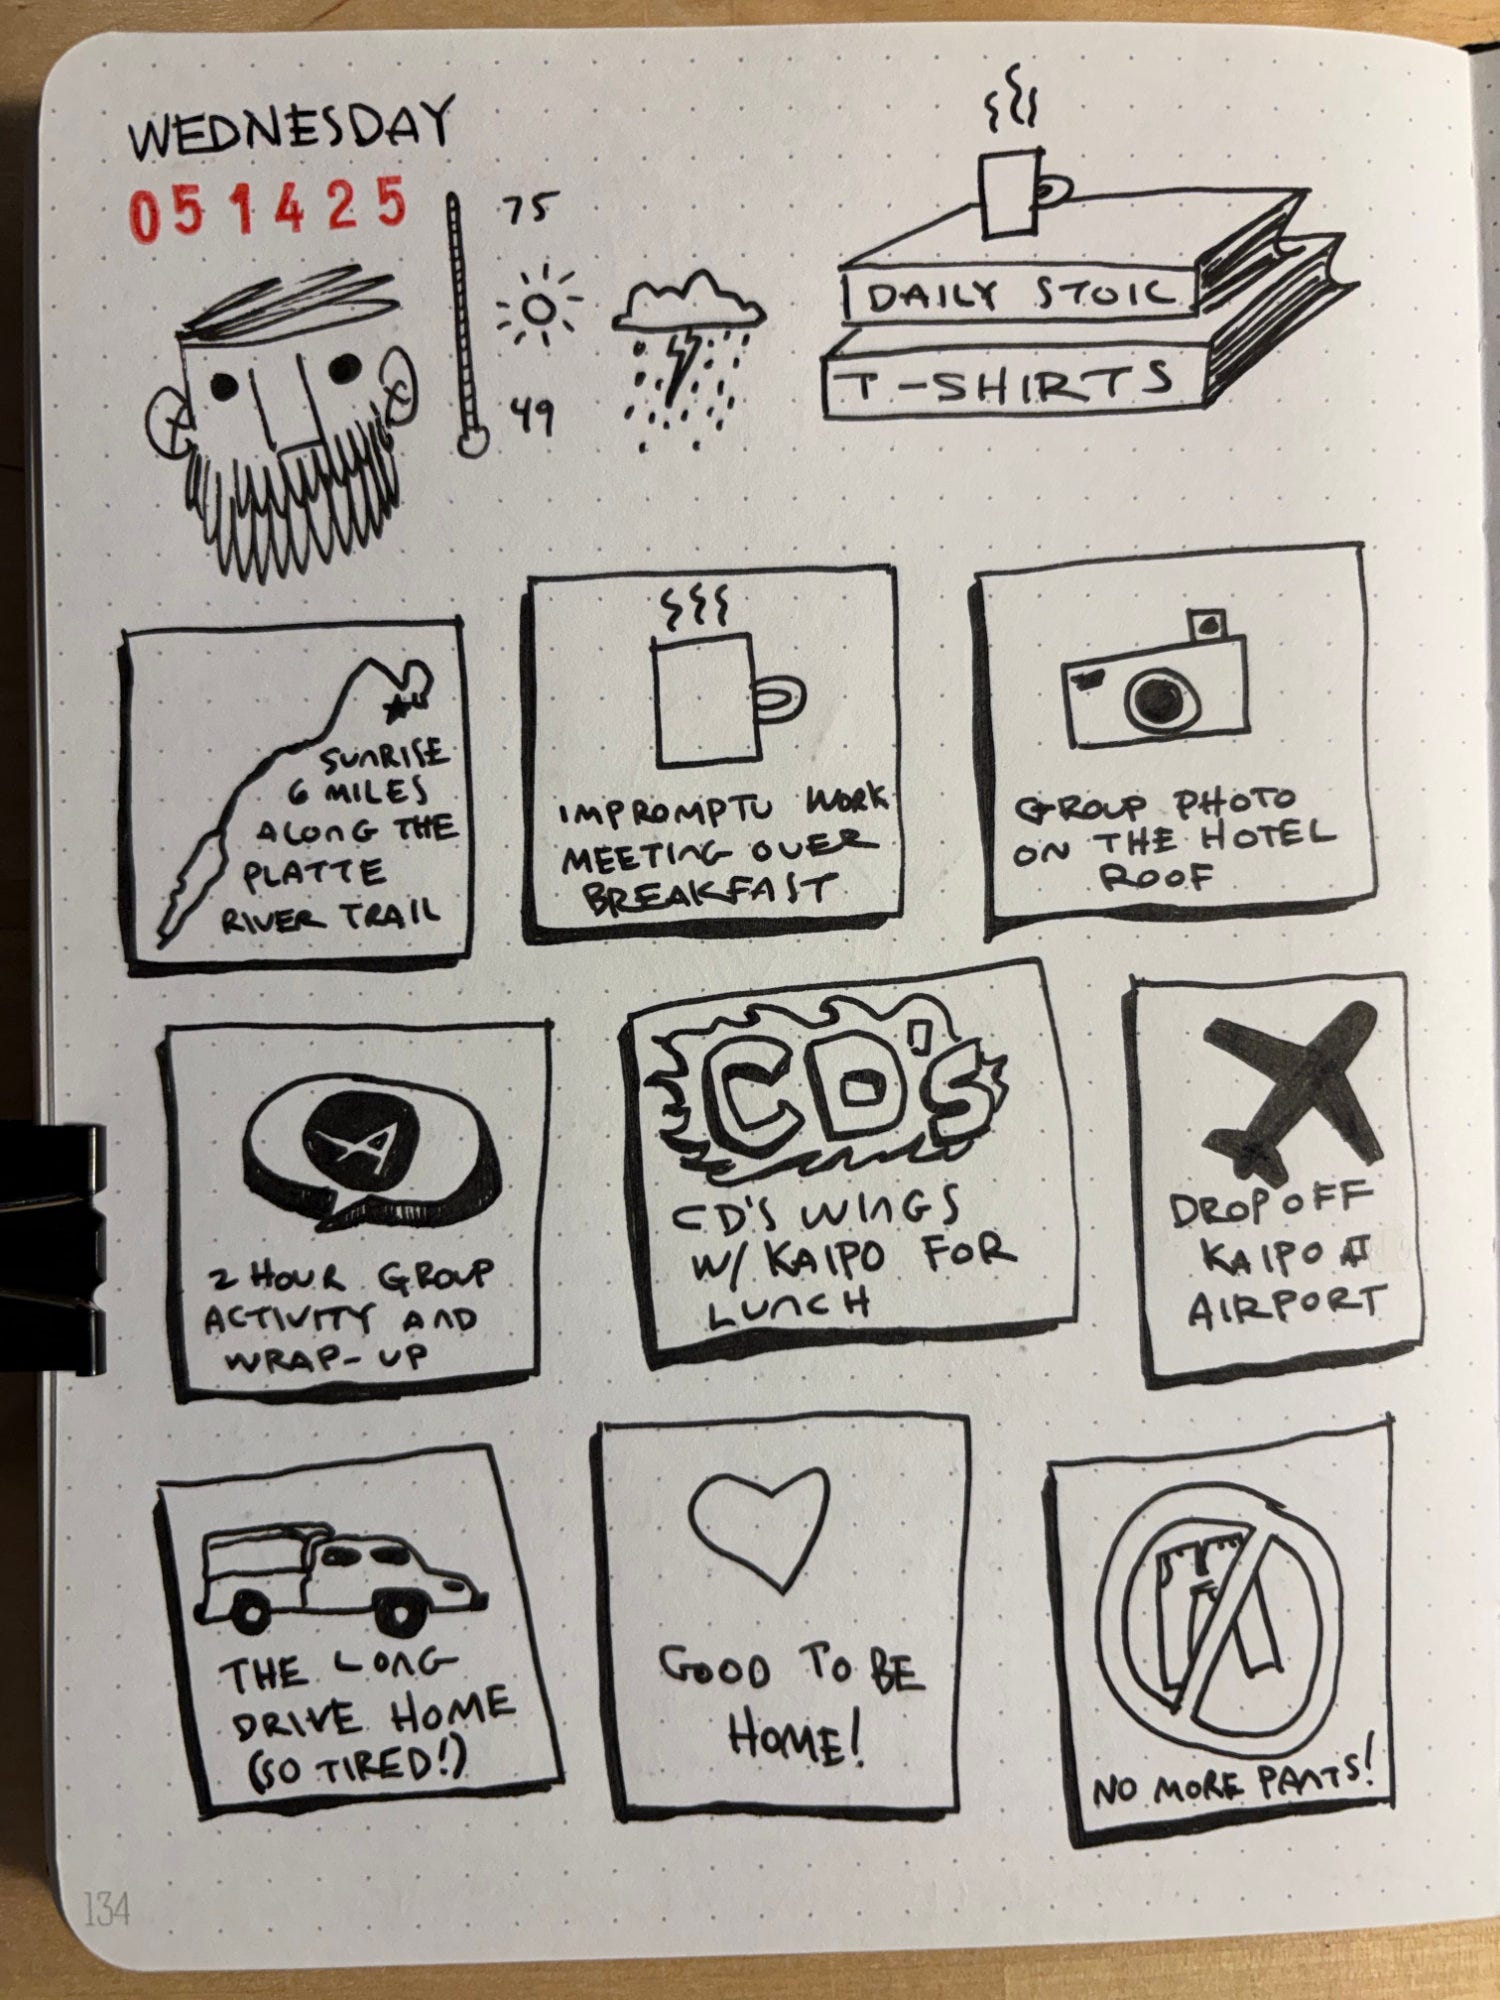 WEDNESDAY
051425
75
49
DAILY STOIC
T-SHIRTS
SUNRISE
6 MILES
ALONG THE
PLATTE
RIVER TRAIL
IMPROMPTU WORK
MEETING OVER
BREAKFAST
GROUP PHOTO
ON THE HOTEL
ROOF
2 HOUR GROUP
ACTIVITY AND
WRAP-UP
CD'S
CD'S WINGS
W/ KAIPO FOR
LUNCH
DROP OFF
KAIPO AT
AIRPORT
THE LONG
DRIVE HOME
(SO TIRED!)
GOOD TO BE
HOME!
NO MORE PANTS!
134